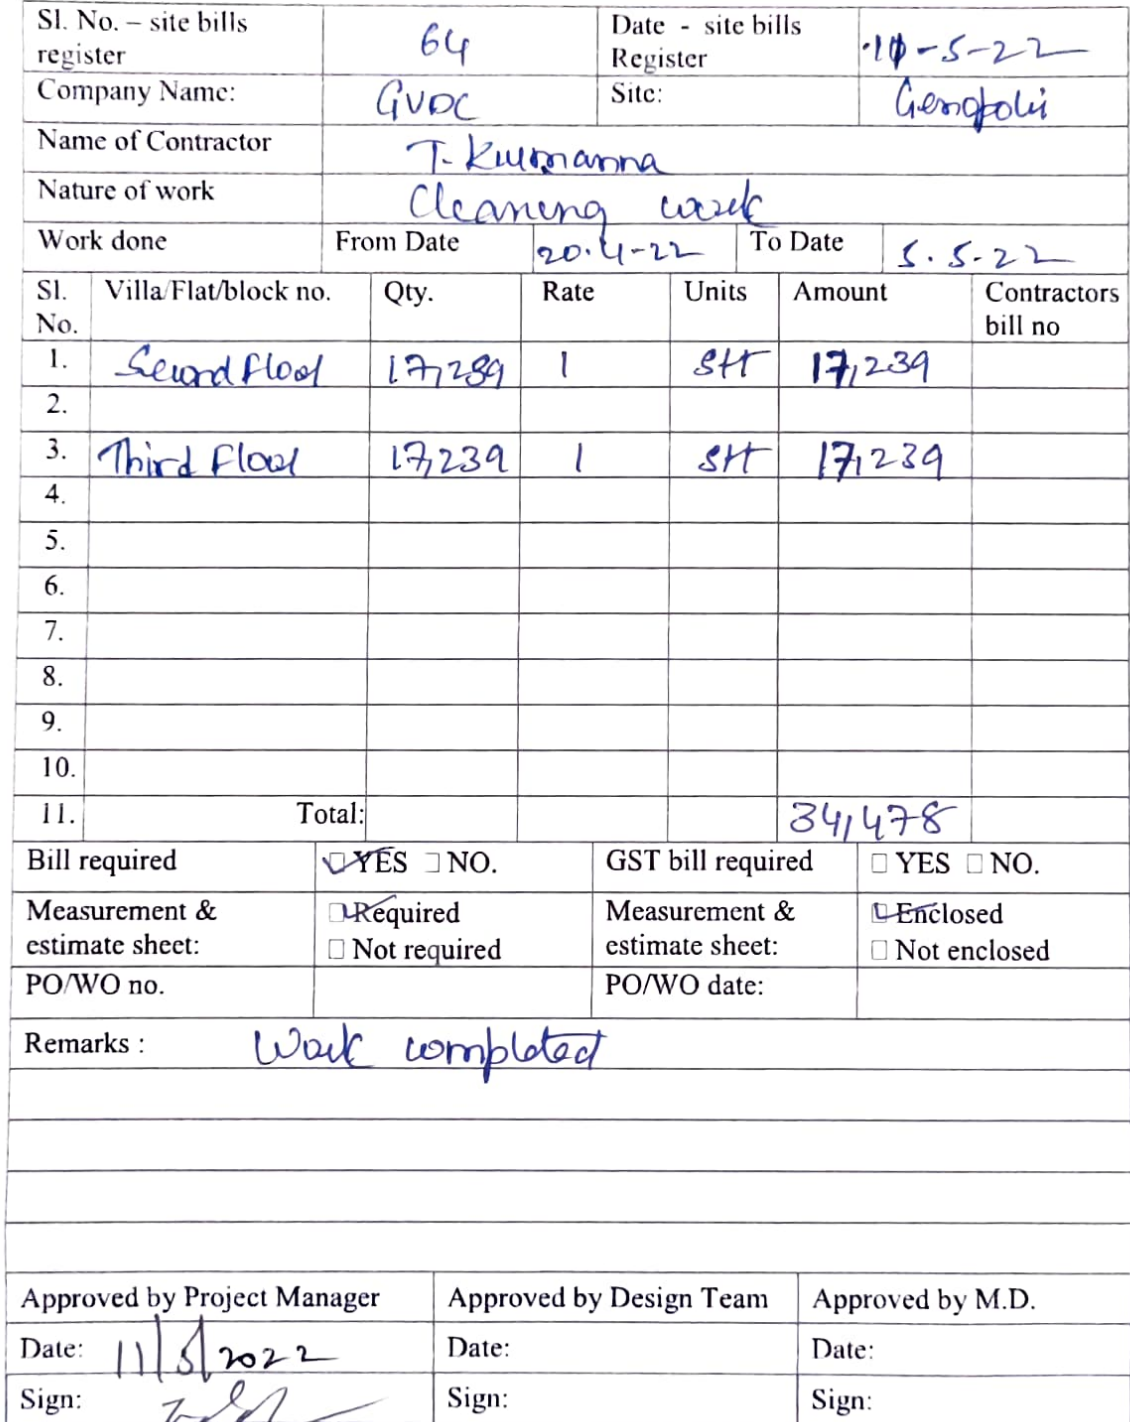 Sl. No. – site bills register 64 Date - site bills Register -5-22
Company Name: GVDC Site: Genopolis
Name of Contractor T. Kurmanna
Nature of work Cleaning work
Work done From Date 20.4-22 To Date 5.5.22
Sl. No. Villa/Flat/block no. Qty. Rate Units Amount Contractors bill no
1. Second Floor 17,239 1 Sft 17,239
2.
3. Third Floor 17,239 1 Sft 17,239
4.
5.
6.
7.
8.
9.
10.
11. Total: 34,478
Bill required YES NO. GST bill required YES NO.
Measurement & estimate sheet: Required Not required Measurement & estimate sheet: Enclosed Not enclosed
PO/WO no. PO/WO date:
Remarks : Work completed
Approved by Project Manager Approved by Design Team Approved by M.D.
Date: 11/5/2022 Date: Date:
Sign: Sign: Sign: